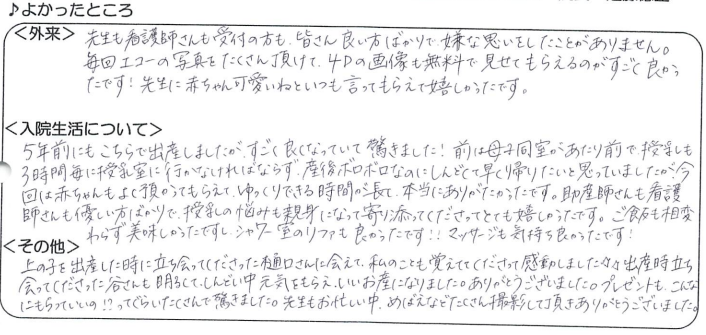 ♪よかったところ
<外来> 先生も看護師さんも受付の方も、皆さん良い方ばかりで、嫌な思いをしたことがありません。
毎回エコーの写真をたくさん頂けて、4Dの画像も無料で見せてもらえるのがすごく良かっ
たです!先生に赤ちゃん可愛いねといつも言ってもらえて嬉しかったです。
<入院生活について>
5年前にもこちらで出産しましたが、すごく良くなっていて驚きました!前は母子同室があたり前で、授乳も
3時間毎に授乳室に行かなければならず、産後ボロボロなのにしんどくて早く帰りたいと思っていましたが、今
回は赤ちゃんもよく預かってもらえて、ゆっくりできる時間が長くて、本当にありがたかったです。助産師さんも看護
師さんも優しい方ばかりで、授乳の悩みも親身になって寄り添ってくださってとても嬉しかったです。ご飯も相変
わらず美味しかったですし、シャワー室のリファも良かったです!!マッサージも気持ち良かったです!
<その他>
上の子を出産した時に立ち会ってくださった樋口さんに会えて、私のことも覚えててくださって感動しました 出産時立ち
会ってくださった谷さんも明るくて、しんどい中元気をもらえ、いいお産になりました。ありがとうございました。プレゼントも、こんな
にもらっていいの!?ってぐらいたくさんで驚きました。先生もお忙しい中、めばえなどたくさん撮影して頂きありがとうございました。